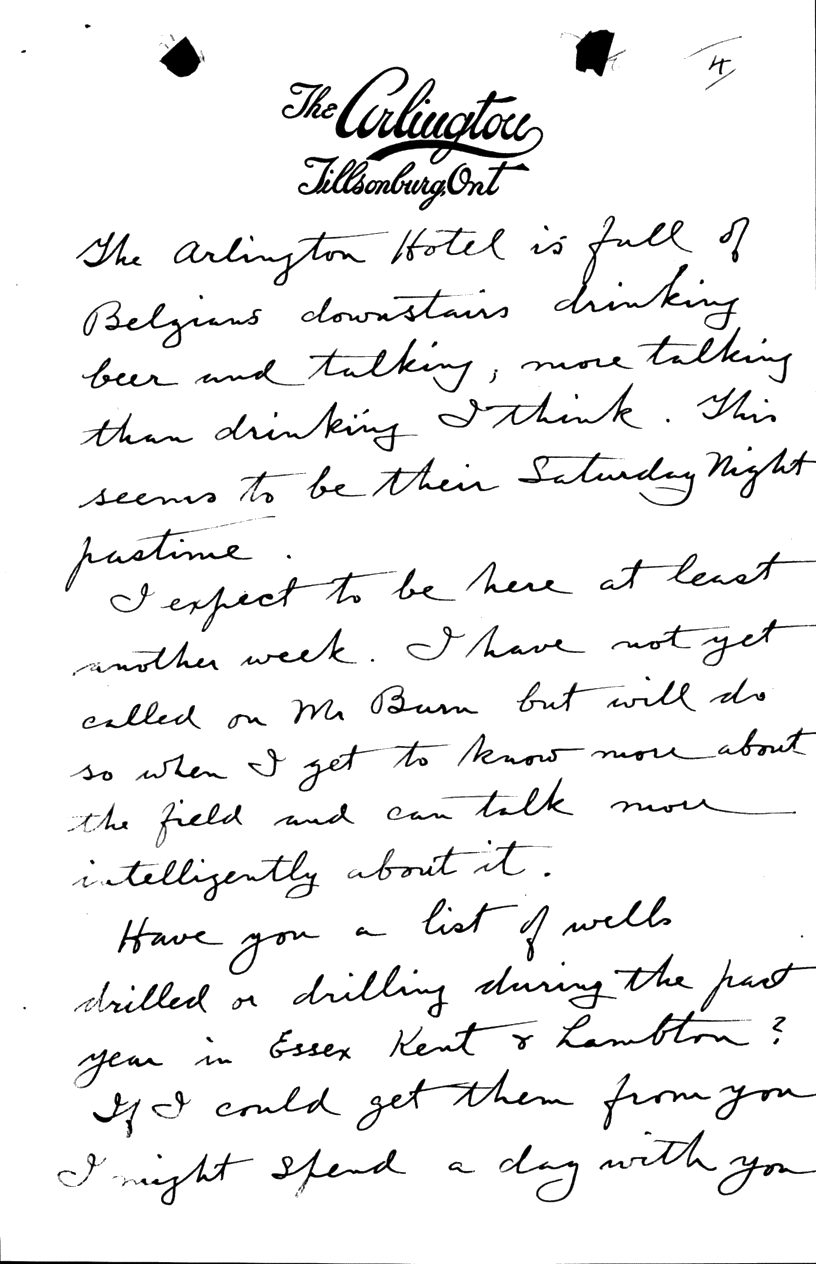 4
The Arlington
Tillsonburg, Ont
The Arlington Hotel is full of
Belgians downstairs drinking
beer and talking, more talking
than drinking I think. This
seems to be their Saturday Night
pastime.
I expect to be here at least
another week. I have not yet
called on Mr Burn but will do
so when I get to know more about
the field and can talk more
intelligently about it.
Have you a list of wells
drilled or drilling during the past
year in Essex Kent & Lambton?
If I could get them from you
I might spend a day with you